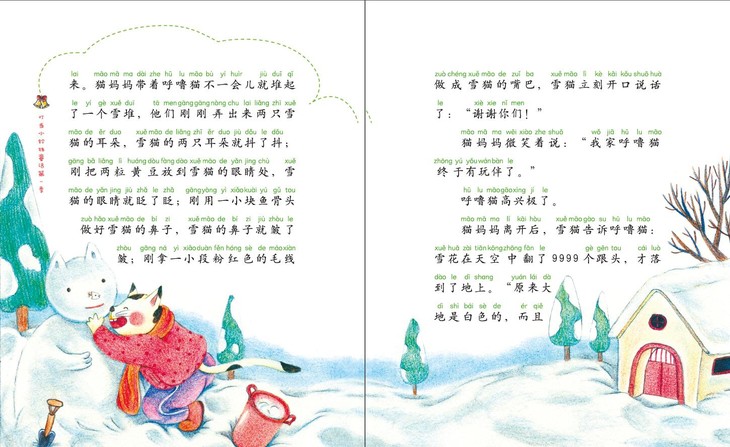 lai māo mā ma dài zhe hū lu māo bù yí huìr jiù duī qǐ
来。猫妈妈带着呼噜猫不一会儿就堆起
le yí gè xuě duī tā men gāng gāng nòng chu lai liǎng zhī xuě
了一个雪堆，他们刚刚弄出来两只雪
māo de ěr duo xuě māo de liǎng zhī ěr duo jiù dǒu le dǒu
猫的耳朵，雪猫的两只耳朵就抖了抖；
gāng bǎ liǎng lì huáng dòu fàng dào xuě māo de yǎn jing chù xuě
刚把两粒黄豆放到雪猫的眼睛处，雪
māo de yǎn jing jiù zhǎ le zhǎ gāng yòng yì xiǎo kuài yú gǔ tou
猫的眼睛就眨了眨；刚用一小块鱼骨头
zuò hǎo xuě māo de bí zi xuě māo de bí zi jiù zhòu le
做好雪猫的鼻子，雪猫的鼻子就皱了
zhòu gāng ná yì xiǎo duàn fěn hóng sè de máo xiàn
皱；刚拿一小段粉红色的毛线
zuò chéng xuě māo de zuǐ ba xuě māo lì kè kāi kǒu shuō huà
做成雪猫的嘴巴，雪猫立刻开口说话
le xiè xie nǐ men
了：“谢谢你们！”
māo mā ma wēi xiào zhe shuō wǒ jiā hū lu māo
猫妈妈微笑着说：“我家呼噜猫
zhōng yú yǒu wán bàn le
终于有玩伴了。”
hū lu māo gāo xìng jí le
呼噜猫高兴极了。
māo mā ma lí kāi hòu xuě māo gào su hū lu māo
猫妈妈离开后，雪猫告诉呼噜猫：
xuě huā zài tiān kōng zhōng fān le gè gēn tou cái luò
雪花在天空中翻了9999个跟头，才落
dào le dì shang yuán lái dà
到了地上。“原来大
dì shì bái sè de ér qiě
地是白色的，而且